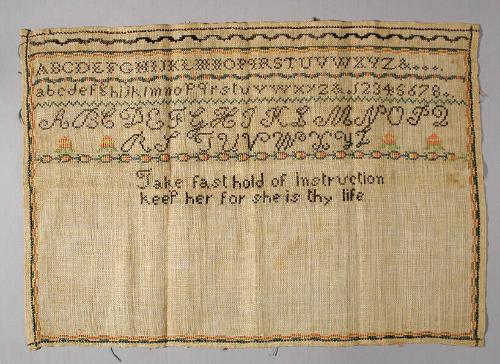 ABCDEFGHIJKLMNOPQRSTUVWXYZ&...
abcdefghijklmnopqrstuvwxyz&.12345678.
ABCDEFGHIJKLMNOPQ
RSTUVWXYZ
Take fast hold of instruction
keep her for she is thy life